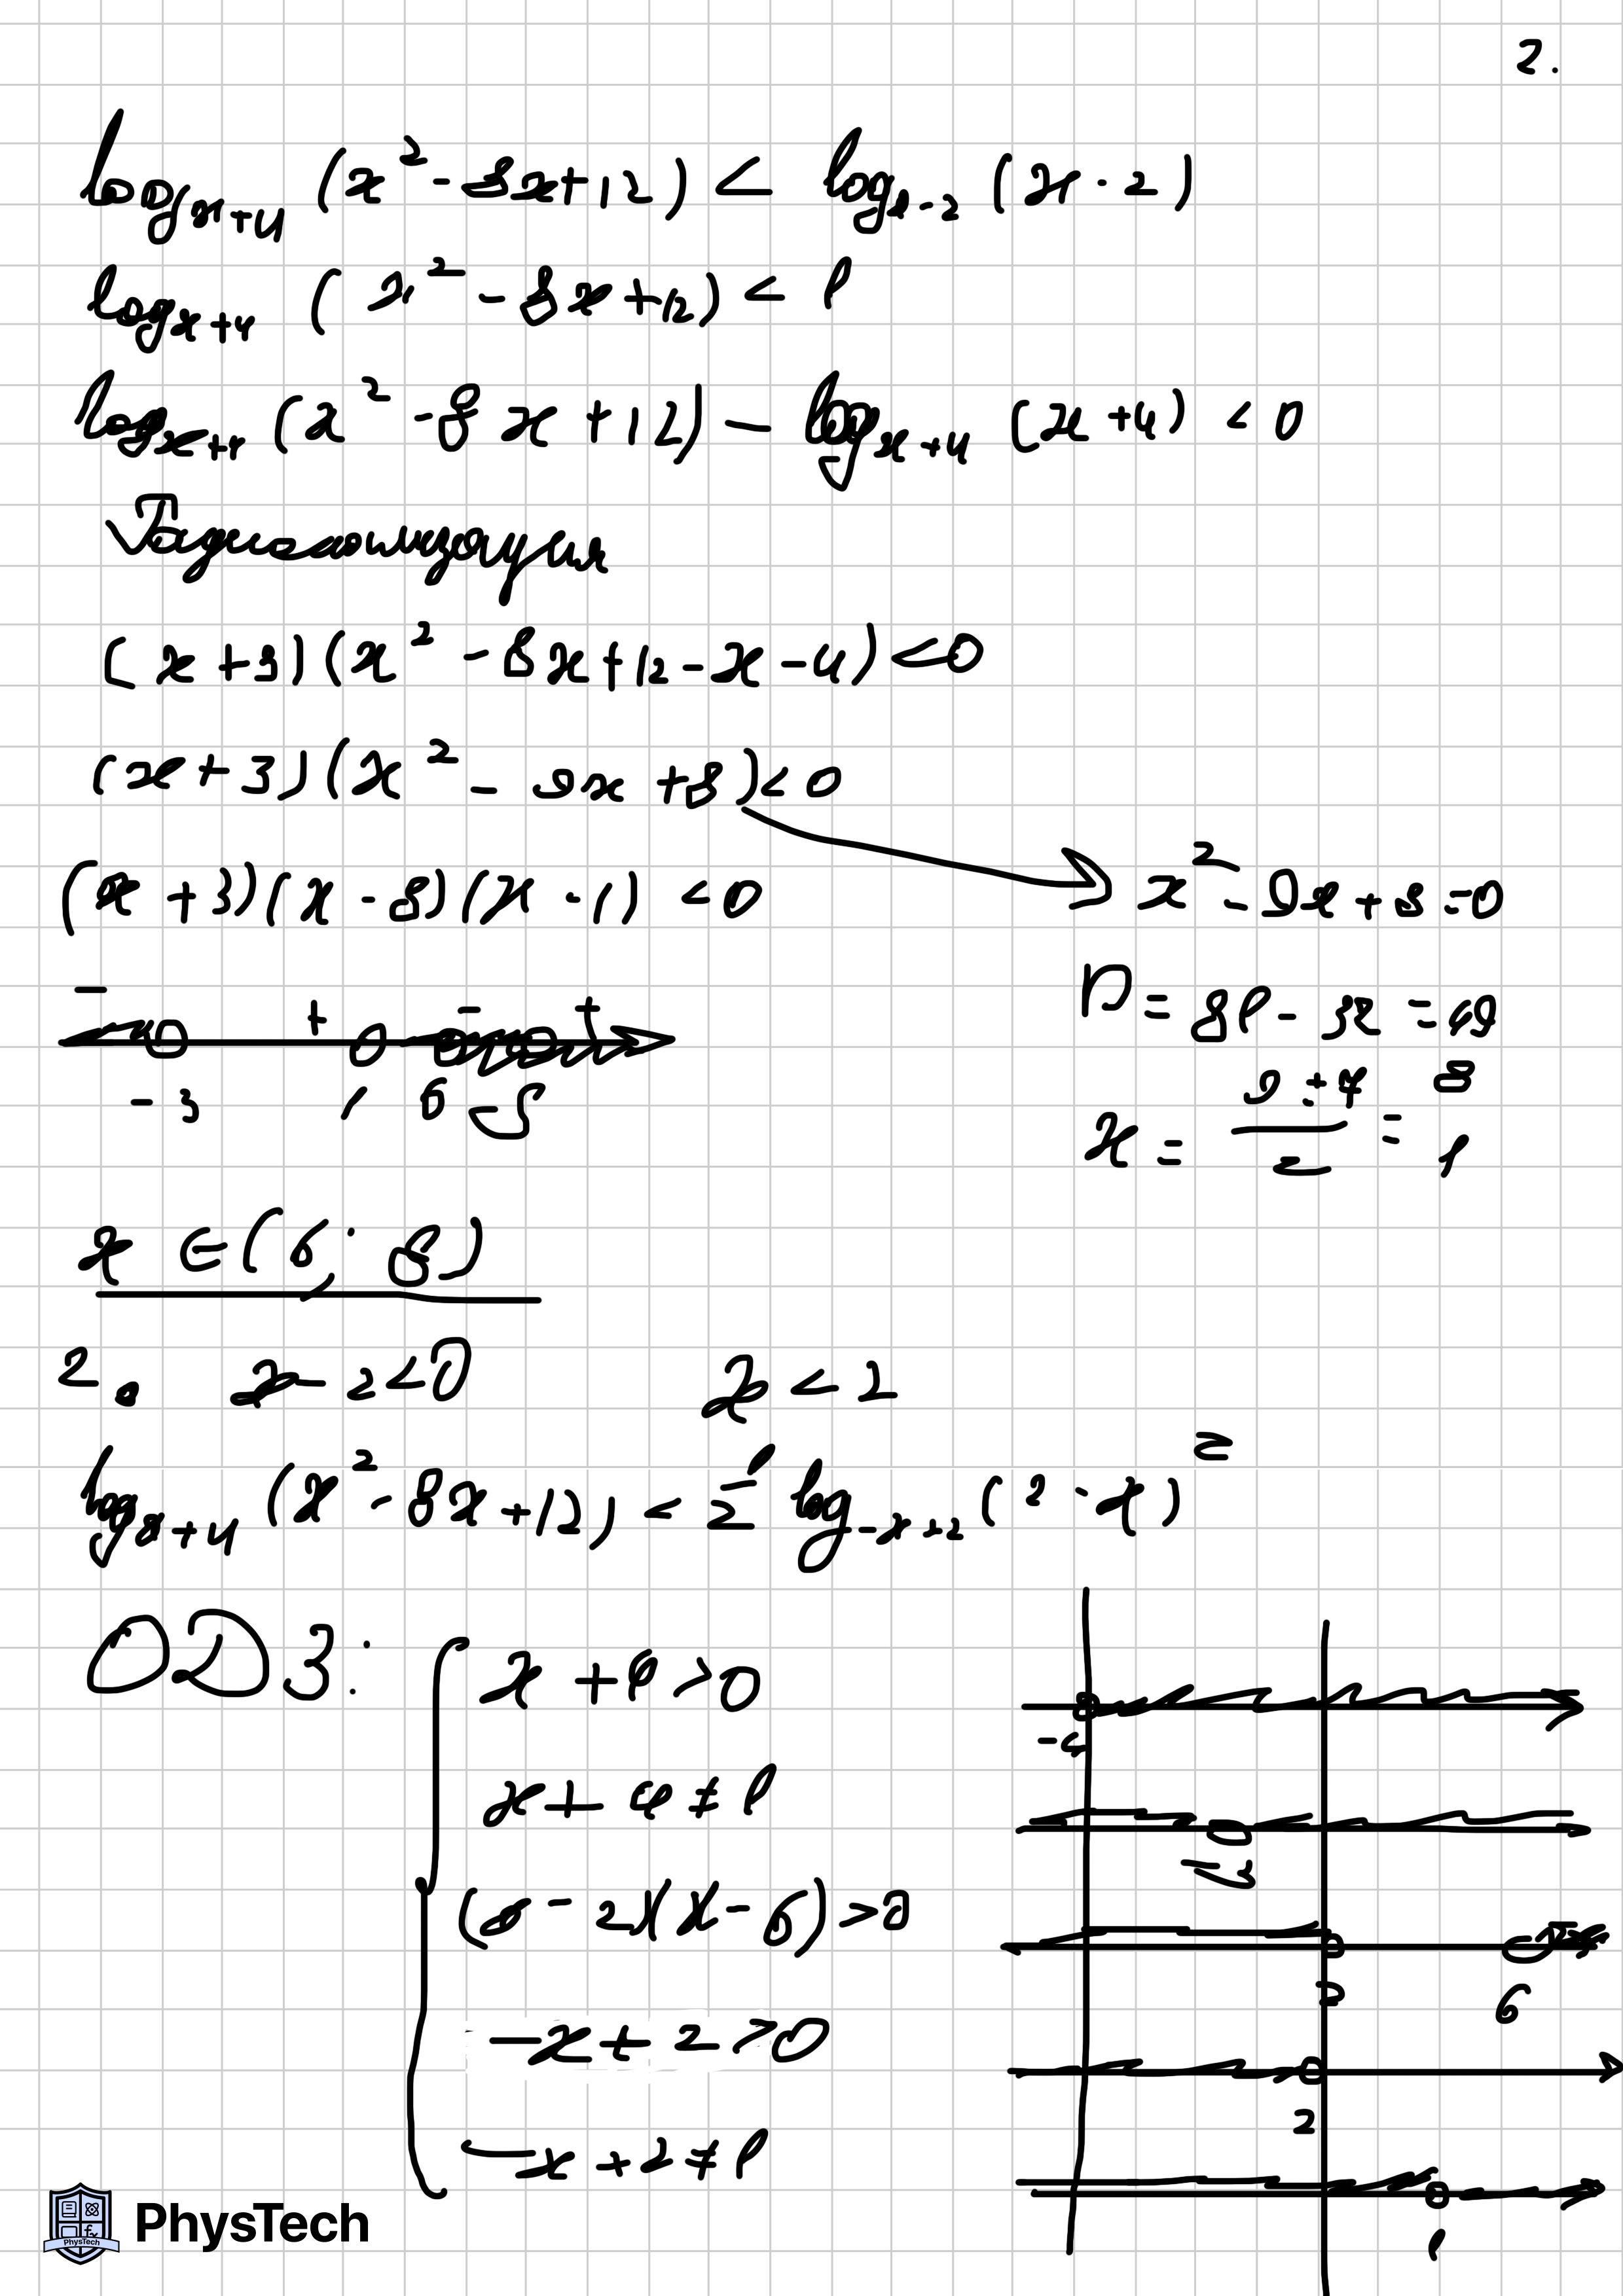 2.
log_{x+4} (x² - 8x + 12) < log_{x-2} (x - 2)
log_{x+4} (x² - 8x + 12) < 1
log_{x+4} (x² - 8x + 12) - log_{x+4} (x + 4) < 0
(x + 3)(x² - 8x + 12 - x - 4) < 0
(x + 3)(x² - 9x + 8) < 0
(x + 3)(x - 8)(x - 1) < 0
x² - 9x + 8 = 0
D = 81 - 32 = 49
x = (9 ± 7)/2 = 8
1
- + - +
-3 1 6
x ∈ (6; 8)
2. x - 2 < 0 x < 2
log_{x+4} (x² - 8x + 12) < log_{-x+2} (2 - x) =
ОДЗ:
x + 4 > 0
-4
x + 4 ≠ 1
-3
(x - 2)(x - 6) > 0
2 6
-x + 2 > 0
2
-x + 2 ≠ 1
1
PhysTech
PhysTech